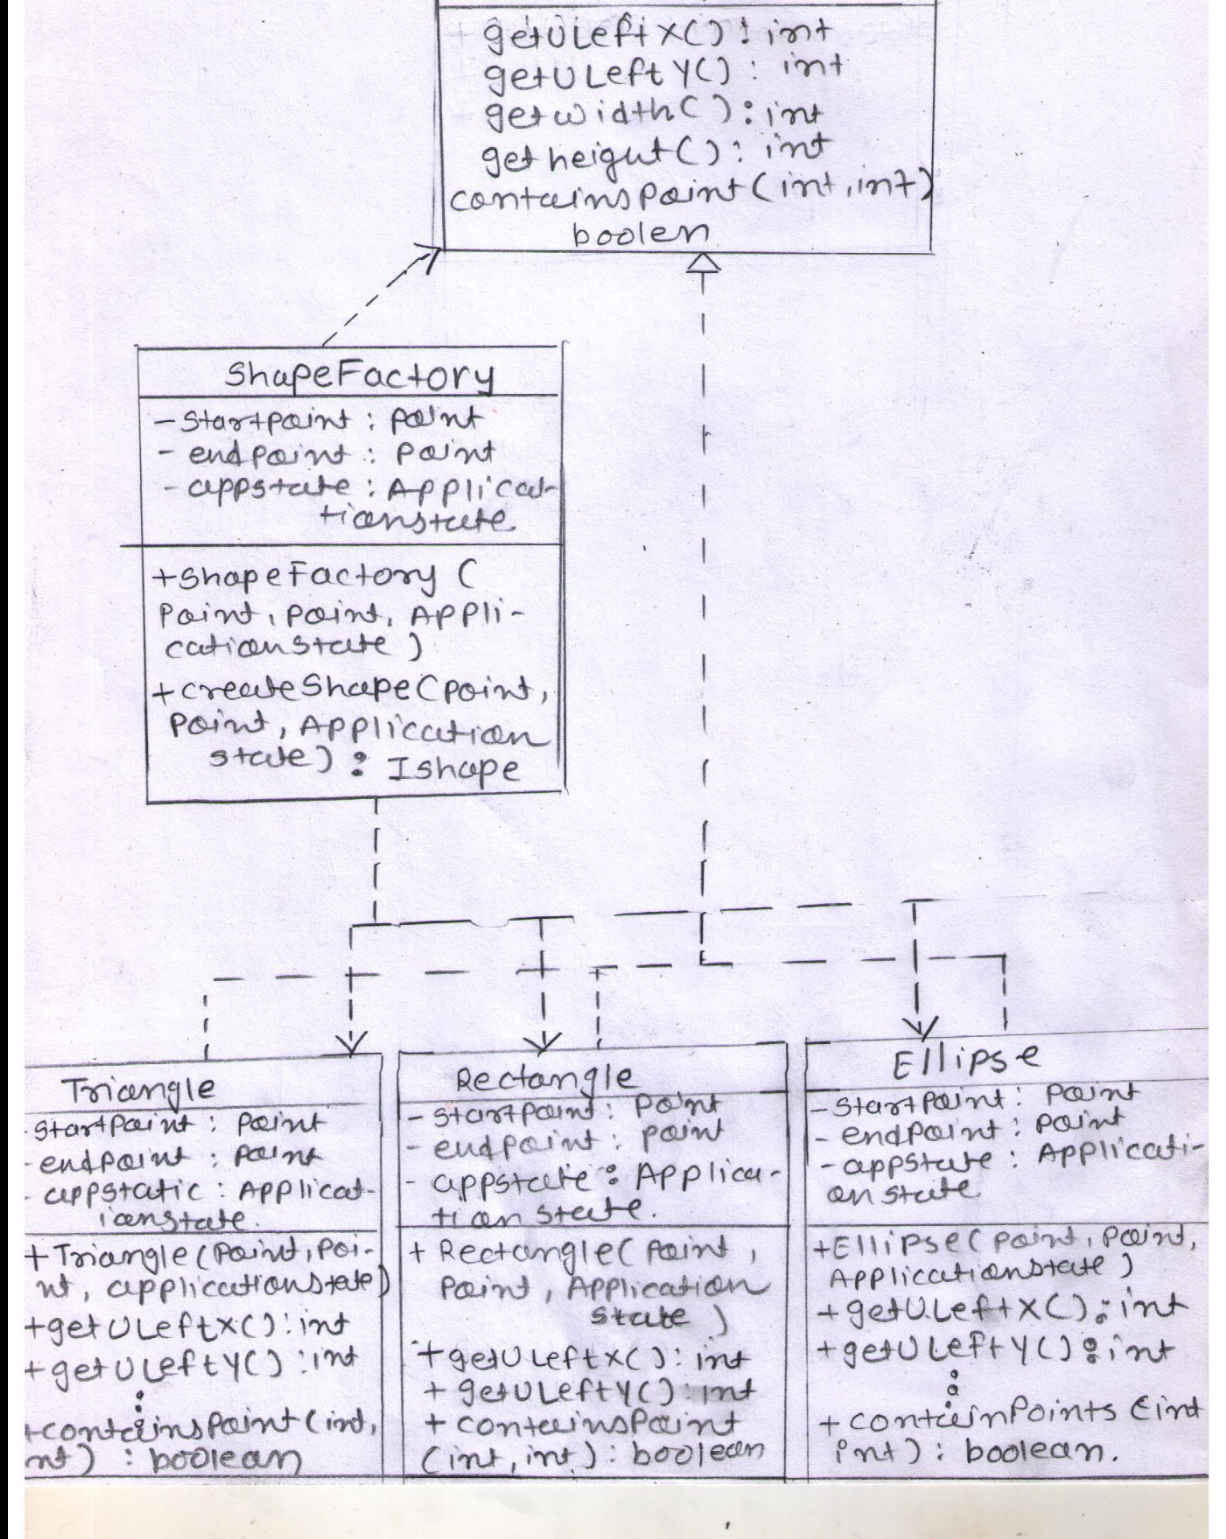 getULeftX() : int
getULeftY() : int
getwidth() : int
getheight() : int
containspoint(int,int)
boolen
ShapeFactory
- Startpoint : point
- endpoint : point
- appstate : Applicat-
tionstate
+ShapeFactory (
Point, point, Appli-
cationState )
+createShape(point,
Point, Application
state) : Ishape
Triangle
- startpoint : point
- endpoint : point
- appstatic : Applicat-
ionstate.
+Triangle(Point, Poi-
nt, applicationstate)
+getULeftx() : int
+getULefty() : int
:
+containsPoint(int,
int) : boolean
Rectangle
- startpoint : point
- endpoint : point
- appstate : Applica-
tion state.
+ Rectangle( Point ,
Point , Application
state )
+getULeftx() : int
+ getULefty() : int
+ containsPoint
(int, int) : boolean
Ellipse
- startpoint : point
- endpoint : point
- appstate : Applicati-
on state
+Ellipse( point, point,
Applicationstate )
+getULeftX() : int
+getULeftY() : int
:
+ containPoints (int
int) : boolean.